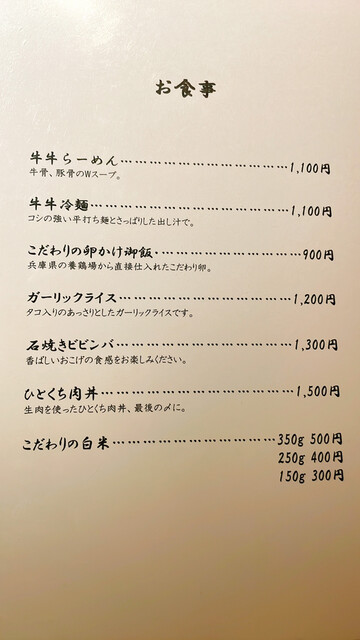 お食事
牛牛らーめん…………………………1,100円
牛骨、豚骨のWスープ。
牛牛冷麺……………………………1,100円
コシの強い平打ち麺とさっぱりした出し汁で。
こだわりの卵かけ御飯……………………900円
兵庫県の養鶏場から直接仕入れたこだわり卵。
ガーリックライス………………………1,200円
タコ入りのあっさりとしたガーリックライスです。
石焼きビビンバ…………………………1,300円
香ばしいおこげの食感をお楽しみください。
ひとくち肉丼……………………………1,500円
生肉を使ったひとくち肉丼、最後の〆に。
こだわりの白米………………………350g 500円
250g 400円
150g 300円